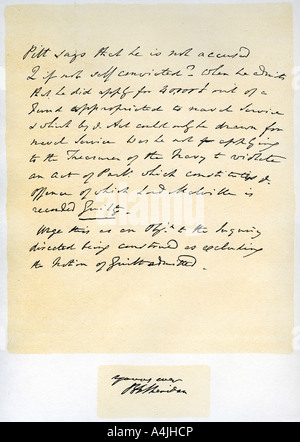 Pitt says that he is not accused
& if not self convicted? When he admits
that he did apply for 40000£ out of a
Fund appropriated to naval Service
& which by Act could only be drawn for
naval Service was he not for applying
to the Treasurer of the Navy to violate
an act of Parlt which constitutes
offence of which Lord Melville is
recorded Guilty.
Urge this as an Objn to the Inquiry
directed being construed as excluding
the Notion of Guilt admitted.
yours ever
RBSheridan
alamy
A4JHCP
www.alamy.com